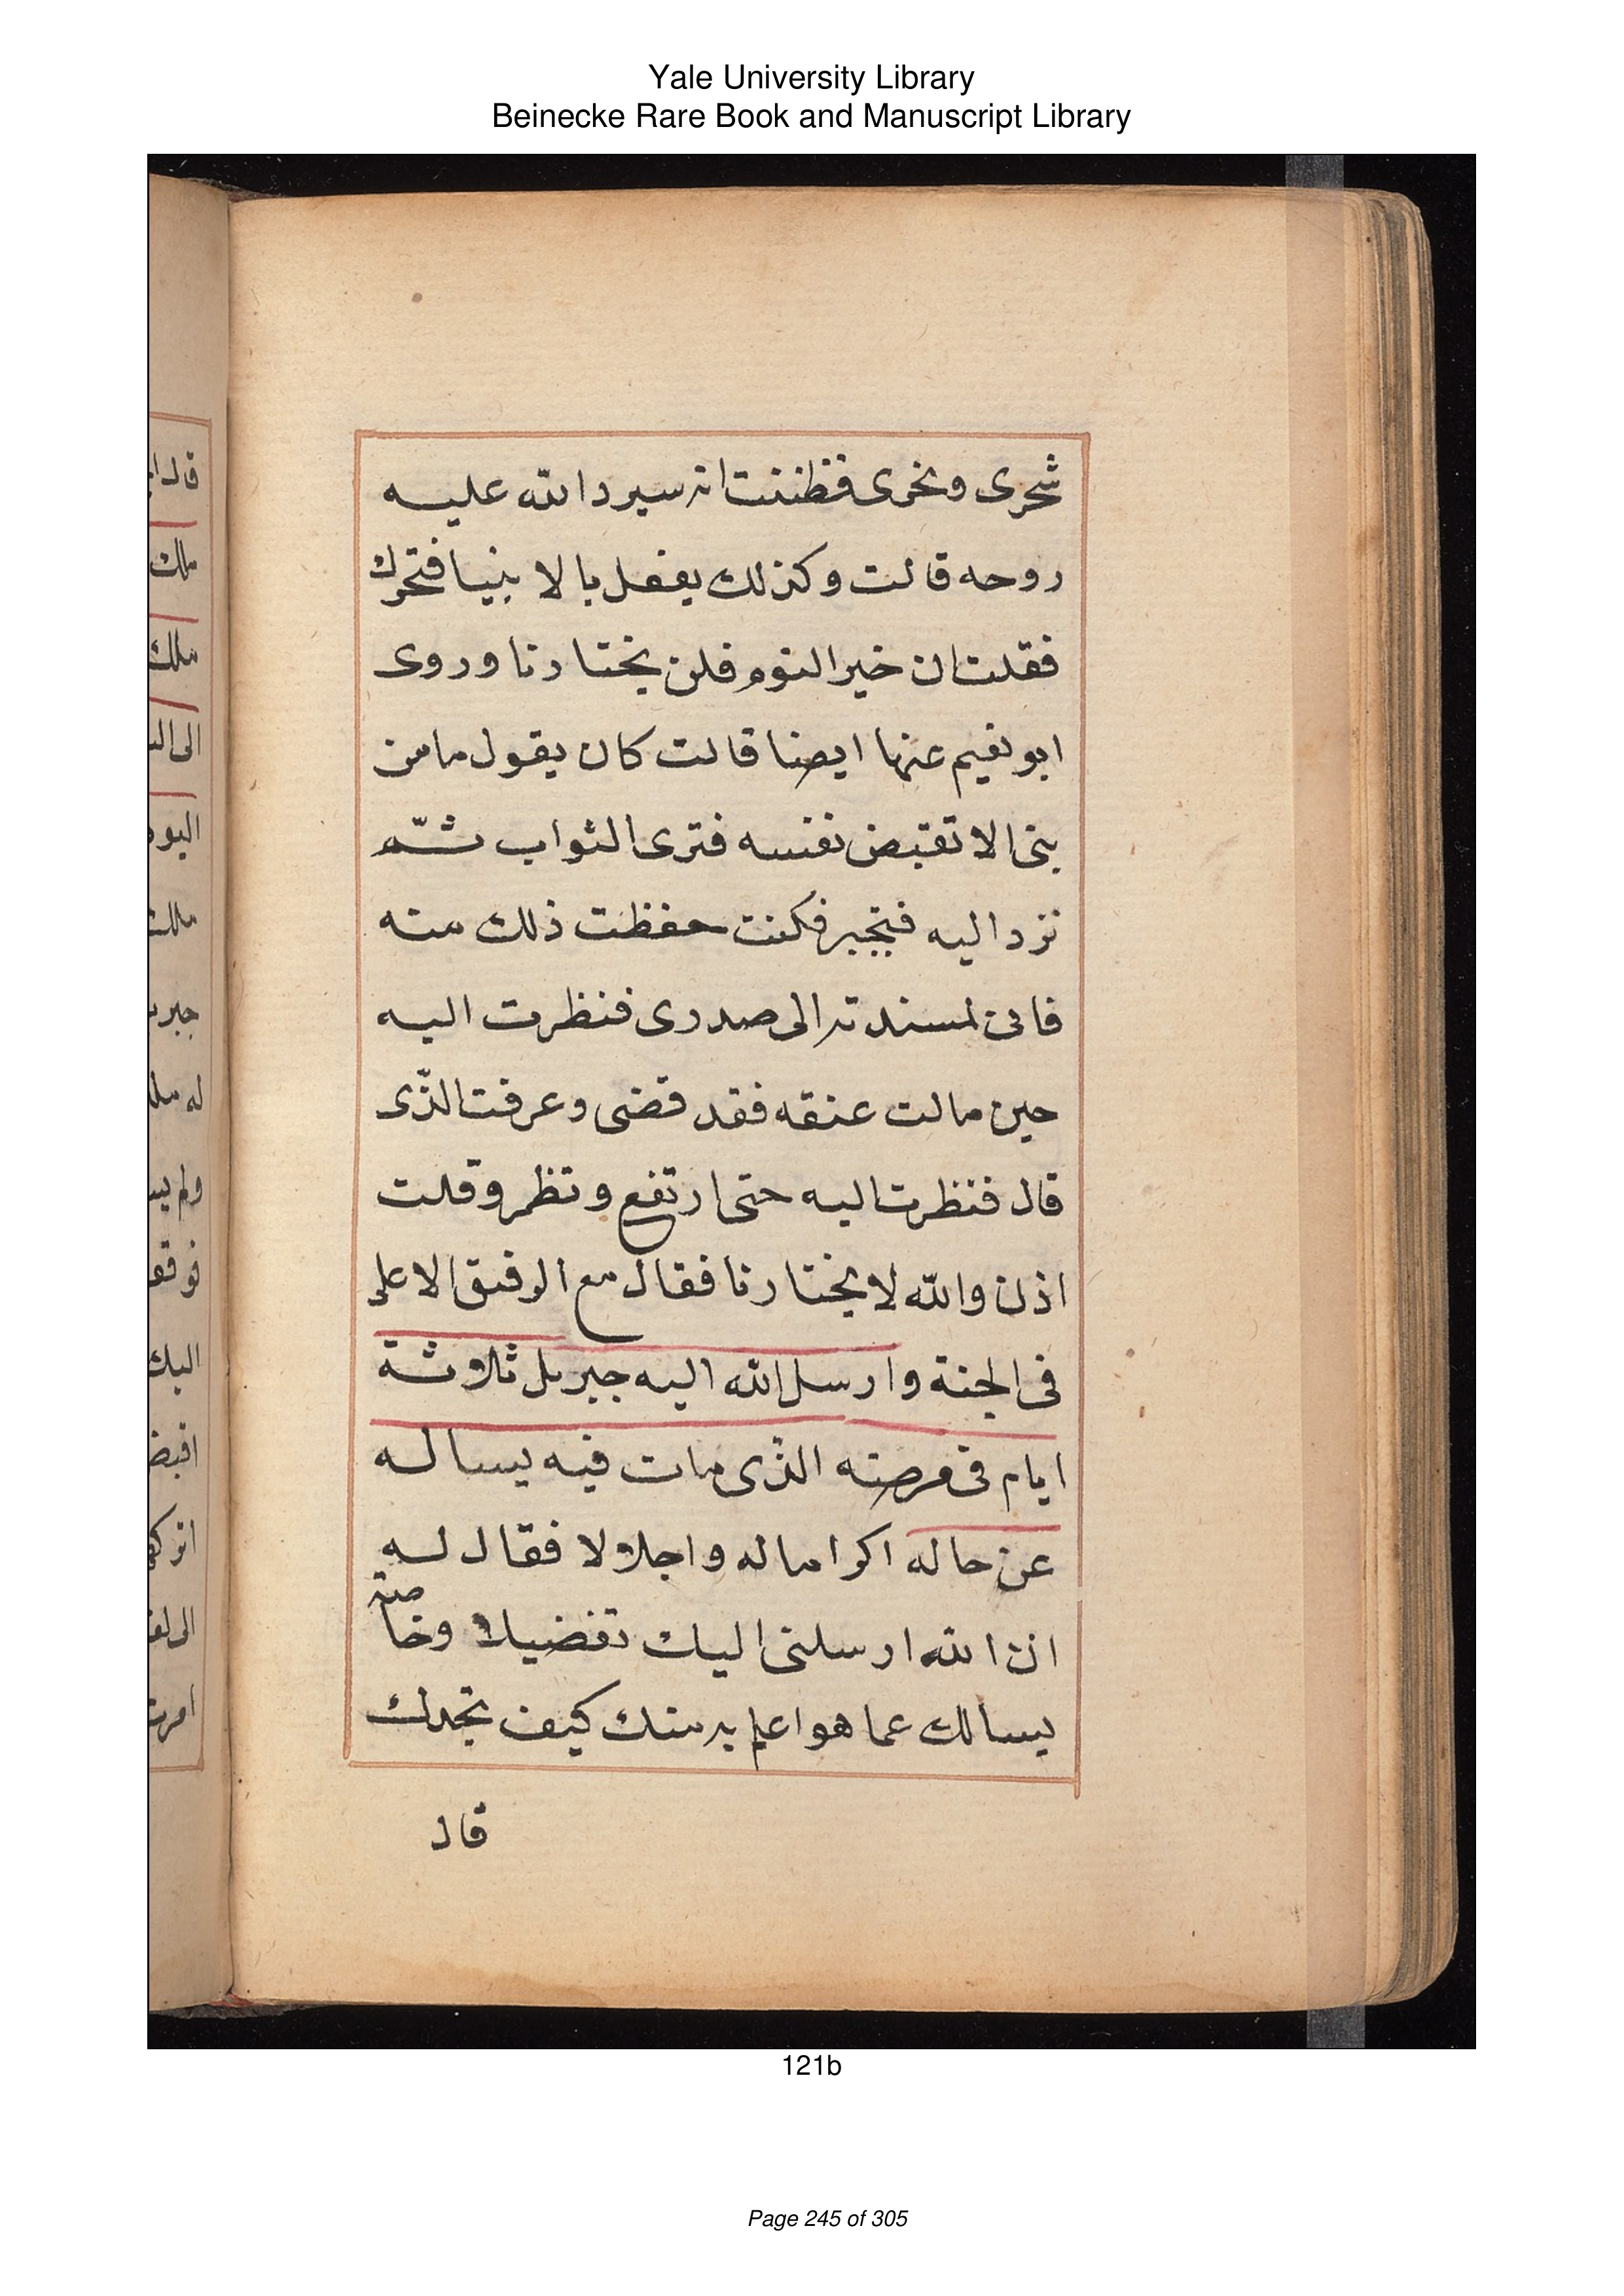 Yale University Library
Beinecke Rare Book and Manuscript Library
شحرى ونحرى فظننت انه سيرد الله عليه
روحه قالت وكذلك يفعل بالانبيا فتحرك
فقلت ان خير اليوم فلن يختارنا وروى
ابو نعيم عنها ايضا قالت كان يقول ما من
بنى الا تقبض نفسه فترى الثواب ثم
ترد اليه فتخير فكنت حفظت ذلك منه
فانى لمسندته الى صدرى فنظرت اليه
حين مالت عنقه فقد قضى وعرفت الذّى
قال فنظرت اليه حتى ارتفع ونظر وقلت
اذن والله لا يختارنا فقال مع الرفيق الاعلى
فى الجنة وارسل الله اليه جبريل ثلاوثة
ايام فى مرضه الذّى مات فيه يساله
عن حاله اكراما له واجلالا فقال له
ان الله ارسلنى اليك تفضيلا وخاصة
يسالك عما هو اعلم به منك كيف تجدك
قال
قال
ملك
ملك
اليوم
ملك
اليك
امرت
121b
Page 245 of 305